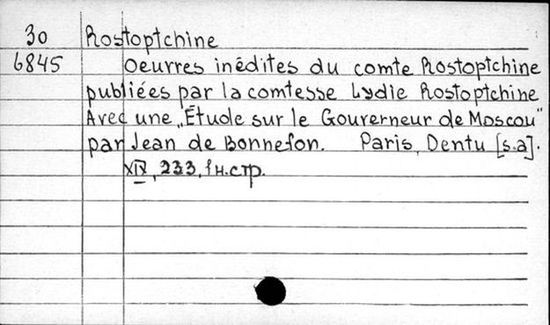 30 Rostoptchine
6845 Oeuvres inédites du comte Rostoptchine
publiées par la comtesse Lydie Rostoptchine
Avec une „Étude sur le Gouverneur de Moscou"
par Jean de Bonnefon. Paris, Dentu [s.a].
XIV, 233, 1 н.стр.